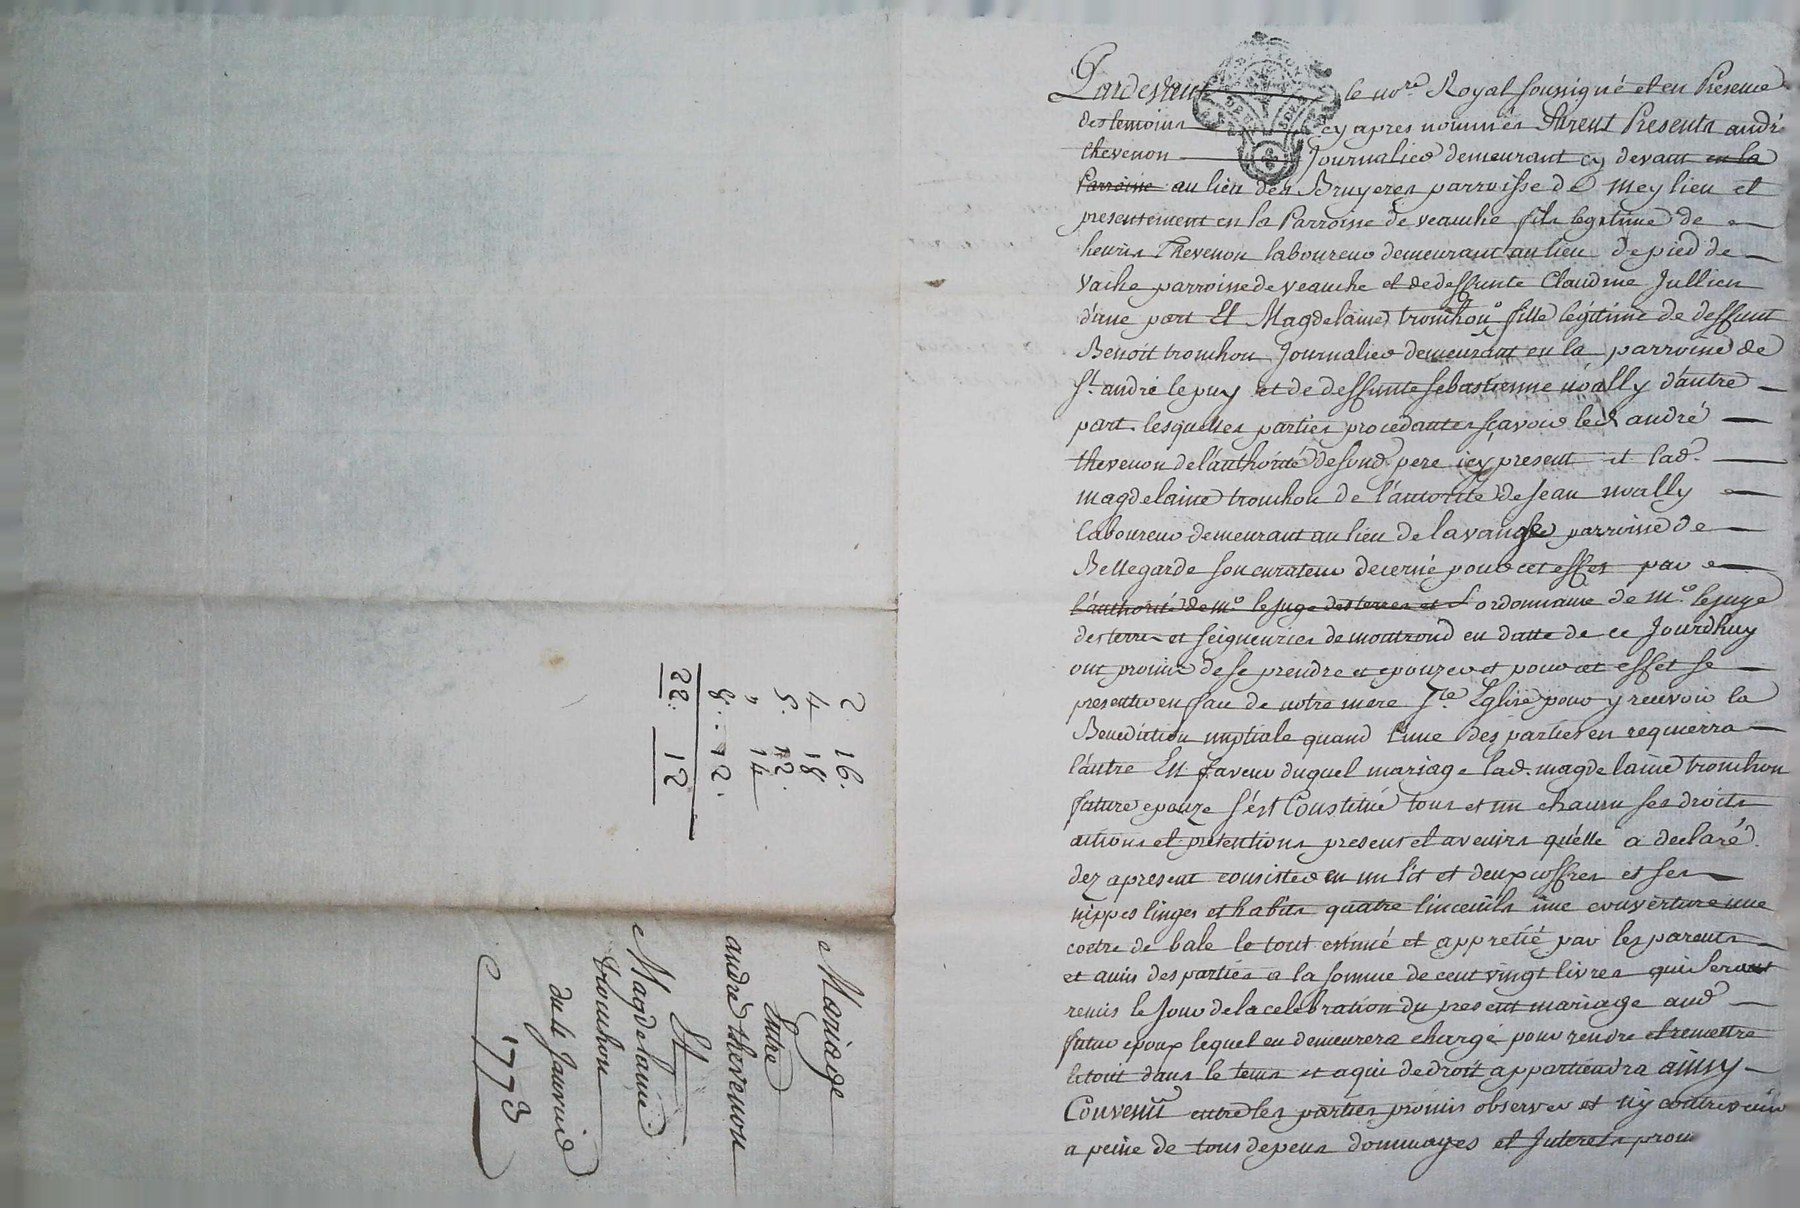 2. 16.
4 18
5. 12.
" 14
8. 12.
22. 12
Mariage
Entre
andré thevenon
Et
Magdelaine
tronchon
du 4 Janvier
1773
Pardevant le nore Royal soussigné et en Presence
des temoins cy apres nommés furent Presents andré
thevenon Journalier demeurant cy devant en la
Parroisse au lieu des Bruyeres parroisse de meylieu et
presentement en la Parroisse de veauche fils legitime de
henris Thevenon laboureur demeurant au lieu de pied de
vache parroisse de veauche et de deffunte Claudine Jullien
d'une part Et Magdelaine tronchon fille légitime de deffunt
Benoit tronchon Journalier demeurant en la parroisse de
St andré le puy et de deffunte sebastienne noally d'autre
part. lesquelles parties procedantes sçavoir led andré
thevenon de l'authorité de sond. pere icy present et lad.
magdelaine tronchon de l'autorité de Jean noally
laboureur demeurant au lieu de parroisse de
Bellegarde son curateur decerné pour cet effet par
l'authorité de mr le Juge des terres et L'ordonnance de mr. le juge
des terres et seigneuries de montrond en datte de ce Jourdhuy
ont promis de se prendre et epouzer et pour cet effet se
presenter en face de notre mere Ste Eglise pour y recevoir la
Benediction nuptiale quand l'une des parties en requerra
l'autre En faveur duquel mariage lad. magdelaine tronchon
future epouze s'est Constitué tous et un chacun ses droits
actions et pretentions present et avenirs qu'elle a declaré
dez apresent consister en un lit et deux coffres et ses
nippes linges et habits quatre linceuils une couverture une
coetre de bale le tout estimé et appretié par les parents
et amis des parties a la somme de cent vingt livres qui seront
remis le Jour de la celebration du present mariage aud
futur epoux lequel en demeurera chargé pour rendre et remettre
le tout dans le tems et a qui de droit appartiendra ainsy
Convenu entre les parties promis observer et n'y contrevenir
a peine de tous depens dommages et Interets